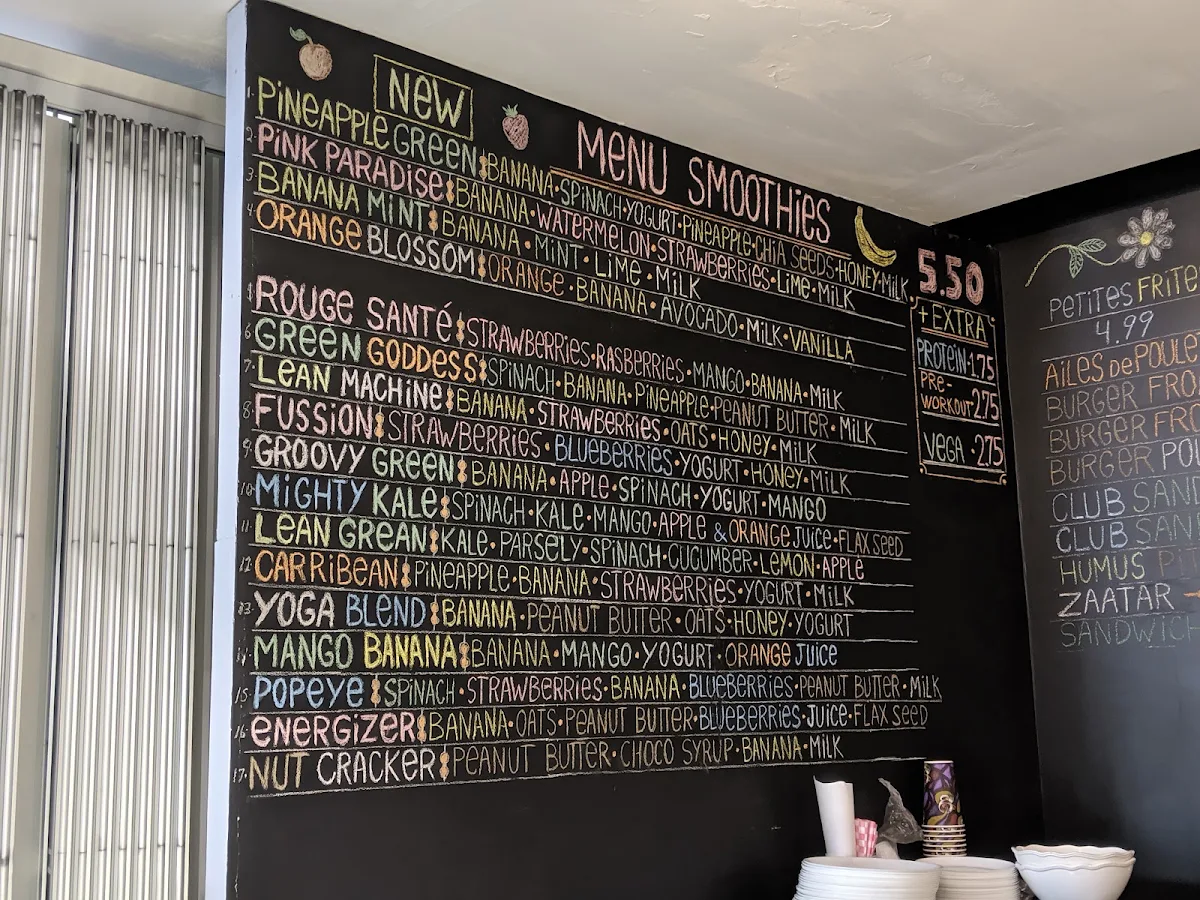 NEW
MENU SMOOTHIES
1. PINEAPPLE GREEN: BANANA·SPINACH·YOGURT·PINEAPPLE·CHIA SEEDS·HONEY·MILK
2. PINK PARADISE: BANANA·WATERMELON·STRAWBERRIES·LIME·MILK
3. BANANA MINT: BANANA·MINT·LIME·MILK
4. ORANGE BLOSSOM: ORANGE·BANANA·AVOCADO·MILK·VANILLA
ROUGE SANTÉ: STRAWBERRIES·RASBERRIES·MANGO·BANANA·MILK
6. GREEN GODDESS: SPINACH·BANANA·PINEAPPLE·PEANUT BUTTER·MILK
7. LEAN MACHINE: BANANA·STRAWBERRIES·OATS·HONEY·MILK
8. FUSSION: STRAWBERRIES·BLUEBERRIES·YOGURT·HONEY·MILK
9. GROOVY GREEN: BANANA·APPLE·SPINACH·YOGURT·MANGO
10. MIGHTY KALE: SPINACH·KALE·MANGO·APPLE & ORANGE JUICE·FLAX SEED
11. LEAN GREAN: KALE·PARSELY·SPINACH·CUCUMBER·LEMON·APPLE
12. CARRIBEAN: PINEAPPLE·BANANA·STRAWBERRIES·YOGURT·MILK
13. YOGA BLEND: BANANA·PEANUT BUTTER·OATS·HONEY·YOGURT
14. MANGO BANANA: BANANA·MANGO·YOGURT·ORANGE JUICE
15. POPEYE: SPINACH·STRAWBERRIES·BANANA·BLUEBERRIES·PEANUT BUTTER·MILK
16. ENERGIZER: BANANA·OATS·PEANUT BUTTER·BLUEBERRIES·JUICE·FLAX SEED
17. NUT CRACKER: PEANUT BUTTER·CHOCO SYRUP·BANANA·MILK
5.50
+ EXTRA
PROTEIN·1.75
PRE-
WORKOUT·2.75
VEGA·2.75
PETITES FRITE
4.99
AILES de POULE
BURGER FRO
BURGER FRO
BURGER POU
CLUB SAN
CLUB SAN
HUMUS PI
ZAATAR
SANDWICH